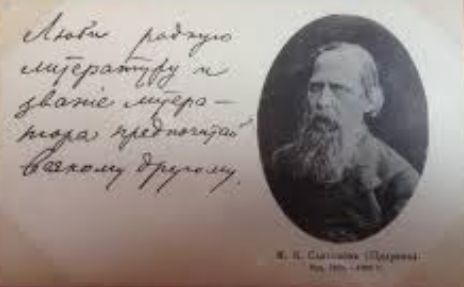 Люби родную
литературу и
званіе литера-
тора предпочитай
всякому другому.
М. Е. Салтыковъ (Щедринъ).